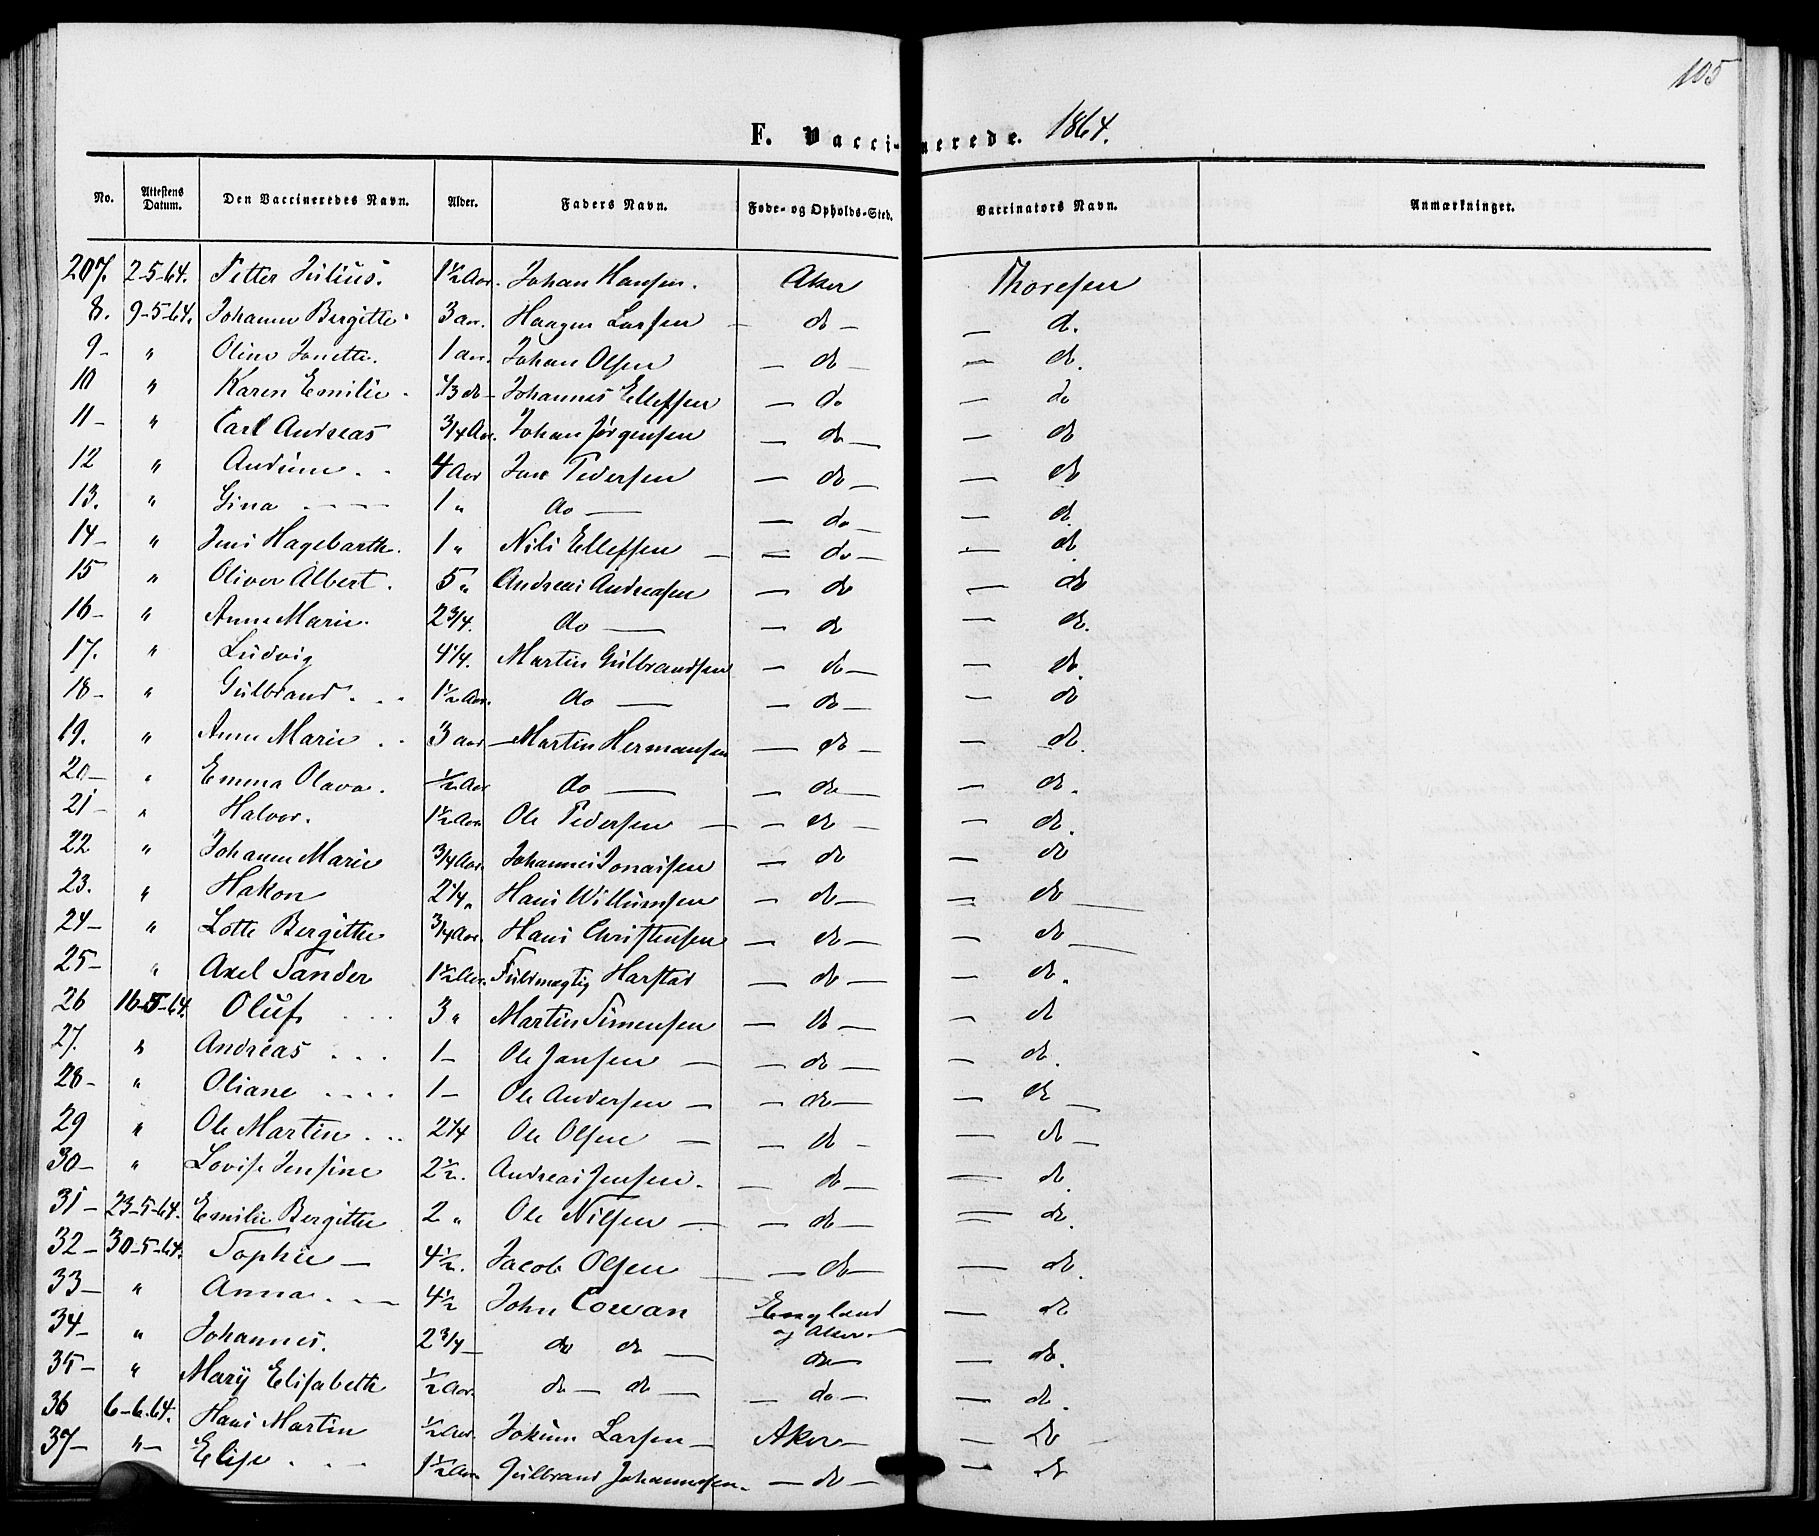 105
F. Vaccinerede. 1864.
No. Attestens Datum. Den Vaccineredes Navn. Alder. Faders Navn. Føde- og Opholds-Sted. Vaccinators Navn. Anmærkninger.
207. 2-5-64. Petter Julius. 1 1/2 Aar. Johan Hansen. Aker Thoresen
8. 9-5-64. Johanne Bergitte 3 aar. Haagen Larsen do d.
9 " Oline Janette. 1 aar. Johan Olsen do do.
10 " Karen Emilie do Johannes Ellefsen do do
11 " Carl Andreas 3/4 Aar. Johan Jørgensen do do
12 " 4 Aar Pedersen do do
13. " Gina 1 " do do do
14 " Jens Hagebarth. 1 " Nils Ellefsen do do
15 " Oliver Albert. 5 " Andreas Andreasen do do
16 " Anne Marie. 2 3/4. do do do.
17. " Ludvig 4 1/4. Martin Gulbrandsen do do.
18 " Gulbrand 1 1/2 Aar. do do do
19. " Anne Marie 3 aar Martin Hermansen do do.
20 " Emma Olava. 1/2 Aar do do do.
21 " Halvor. 1 1/2 Aar Ole Pedersen do do.
22 " Johanne Marie 3/4 Aar. Johannes Jonassen do do
23. " Hakon 2 1/4 " Hans Willumsen do do
24 " Lotte Bergitte 3/4 Aar. Hans Christensen do do
25 " Axel Sander 1 1/2 Aar. Fuldmægtig Harstad do do.
26 16-5-64. Oluf 3 " Martin Simensen do do
27. " Andreas 1 Ole Jansen do do.
28 " Oliane 1 Ole Andersen do do
29 " Ole Martin 2 1/4 Ole Olsen do do
30 " Lovise Jensine 2 1/2. Andreas Jensen. do do
31 23-5-64. Emilie Bergitte 2 " Ole Nilsen do do.
32 30-5-64. Sophie 4 1/2. Jacob Olsen do do.
33 " Anna 4 1/2 John Cowan England og Aker do
34 " Johannes. 2 3/4 do do do do.
35 " Mary Elisabeth 1/2 Aar. do do do do.
36 6-6-64. Hans Martin 1/2 Aar. Larsen Aker do
37 " Elise 1 1/2 Aar Gulbrand Johannesen. do do